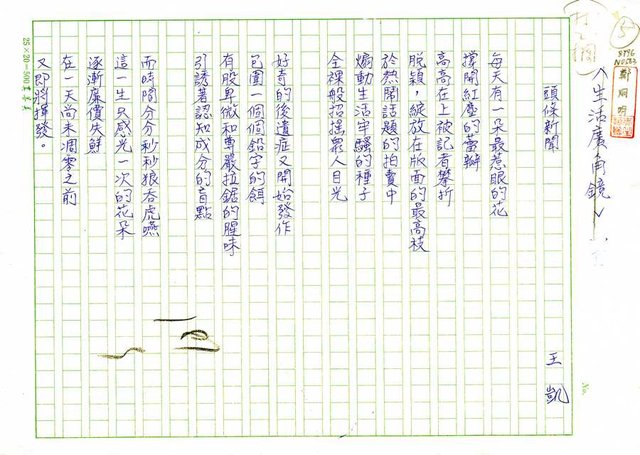 ⑤
8996
NO583
鄭炯明
〈生活廣角鏡〉
頭條新聞
王凱
每天有一朵最惹眼的花
擋開紅塵的當辦
高高在上被記者攀折
脫穎，綻放在版面的最高枝
於熱鬧話題的拍賣中
煽動生活牢騷的種子
全裸般招搖眾人目光
好奇的後遺症又開始發作
包圍一個個鉛字的餌
有股卑微和尊嚴拉鋸的腥味
引誘著認知成分的盲點
而時間分分秒秒狼吞虎嚥
這一生只感光一次的花朵
逐漸廉價失鮮
在一天尚未凋零之前
又即將揮發。
25×20=500